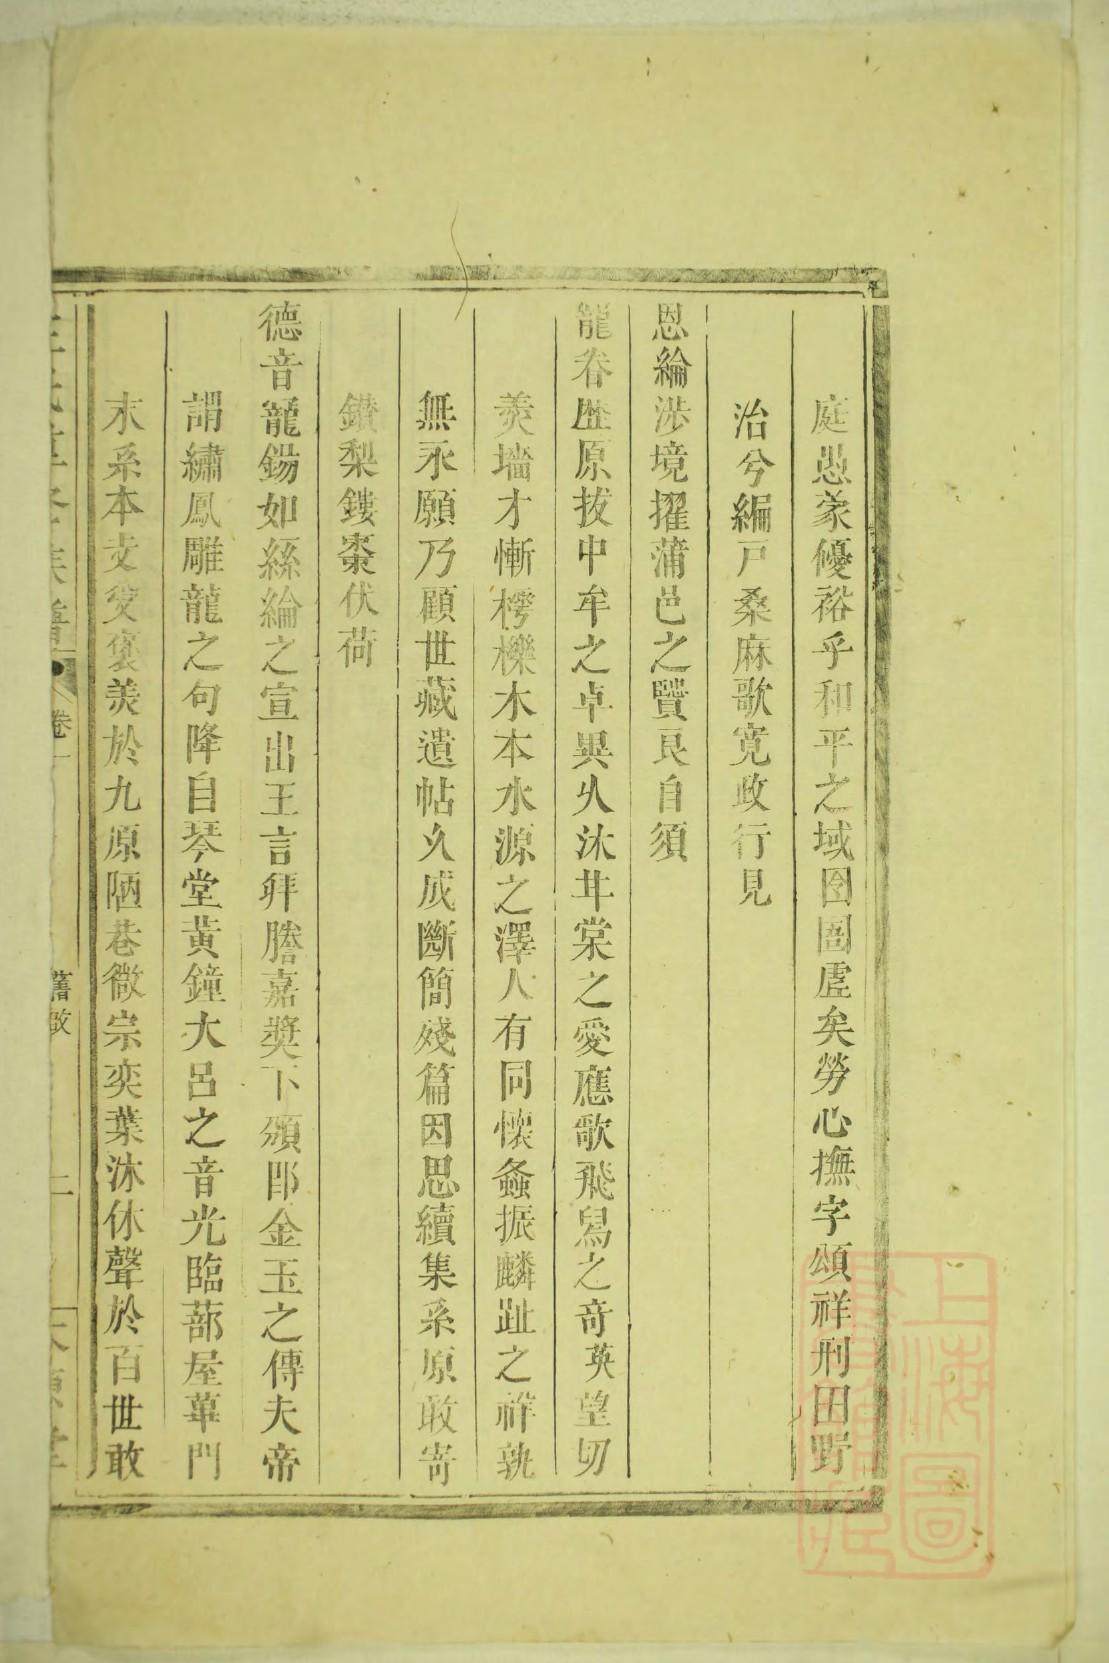 庭愚蒙優裕乎和平之域囹圄虛矣勞心撫字頌祥刑田野
治兮編戸桑麻歌寛政行見
恩綸渉境擢蒲邑之賢良自須
寵眷歴原拔中牟之卓異乆沐甘棠之愛應歌飛舄之竒英望切
羮墻才慚樗櫟木本水源之澤人有同懷螽振麟趾之祥孰
無禾願乃顧世藏遺帖乆成斷簡殘篇因思續集系原敢寄
鐟梨鏤棗伏荷
德音寵錫如絲綸之宣出王言拜謄嘉奬下頒即金玉之傳夫帝
謂繡鳳雕龍之句降自琴堂黄鐘大呂之音光臨蔀屋蓽門
末系本支受褒美於九原陋巷微宗奕葉沐休聲於百世敢
卷一
舊敘
二
太原堂
上海圖書館藏